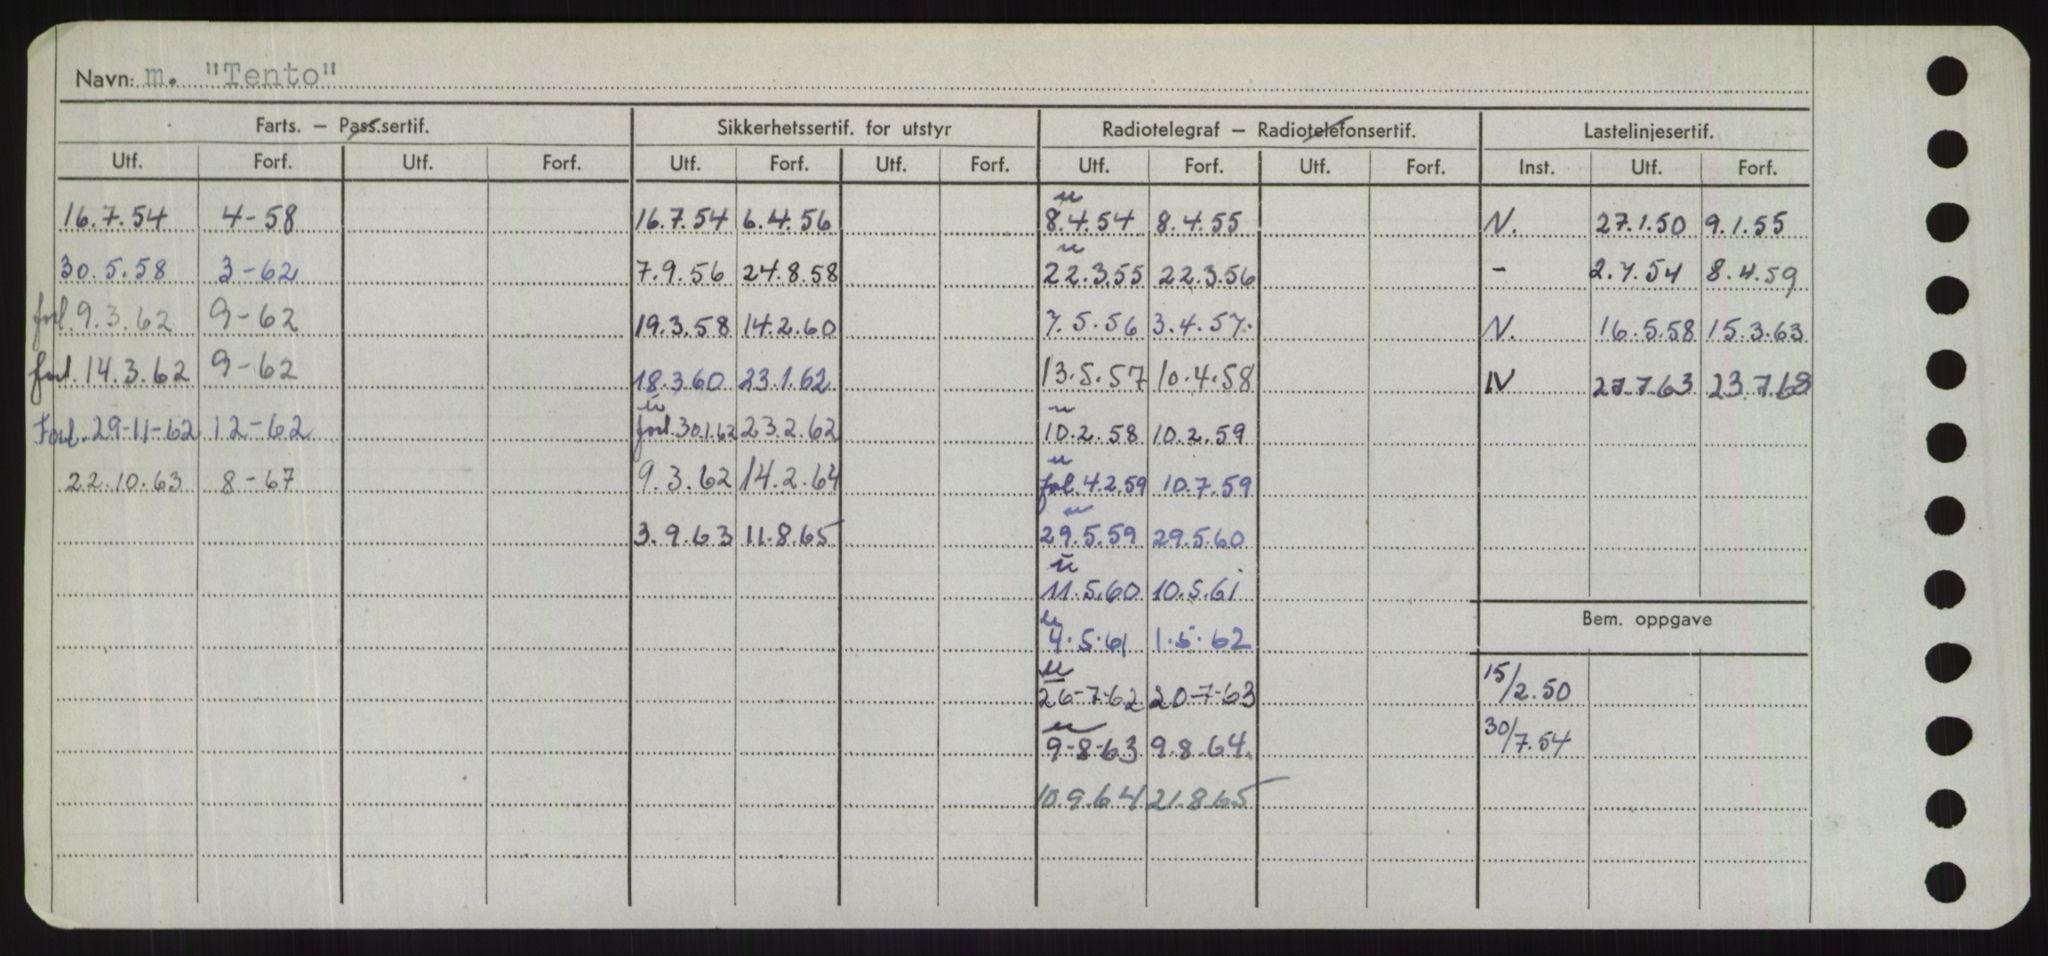 Navn: m. "Tento"
Farts. – Pass.sertif. Sikkerhetssertif. for utstyr Radiotelegraf – Radiotelefonsertif. Lastelinjesertif.
Utf. Forf. Utf. Forf. Utf. Forf. Utf. Forf. Utf. Forf. Utf. Forf. Inst. Utf. Forf.
u
16.7.54 4-58 16.7.54 6.4.56 8.4.54 8.4.55 N. 27.1.50 9.1.55
u
30.5.58 3-62 7.9.56 24.8.58 22.3.55 22.3.56 - 2.7.54 8.4.59
forl. 9.3.62 9-62 19.3.58 14.2.60 7.5.56 3.4.57. N. 16.5.58 15.3.63
forl. 14.3.62 9-62 18.3.60 23.1.62 13.5.57 10.4.58 IV 27.7.63 23.7.68
u u
Forl. 29-11-62 12-62 forl. 30.1.62 23.2.62 10.2.58 10.2.59
u
22.10.63 8-67 9.3.62 14.2.64 fol. 4.2.59 10.7.59
u
3.9.63 11.8.65 29.5.59 29.5.60
u
11.5.60 10.5.61
u
4.5.61 1.5.62
Bem. oppgave
u
26-7-62 20-7-63 15/2.50
u
9-8-63 9.8.64. 30/7.54
10.9.64 21.8.65